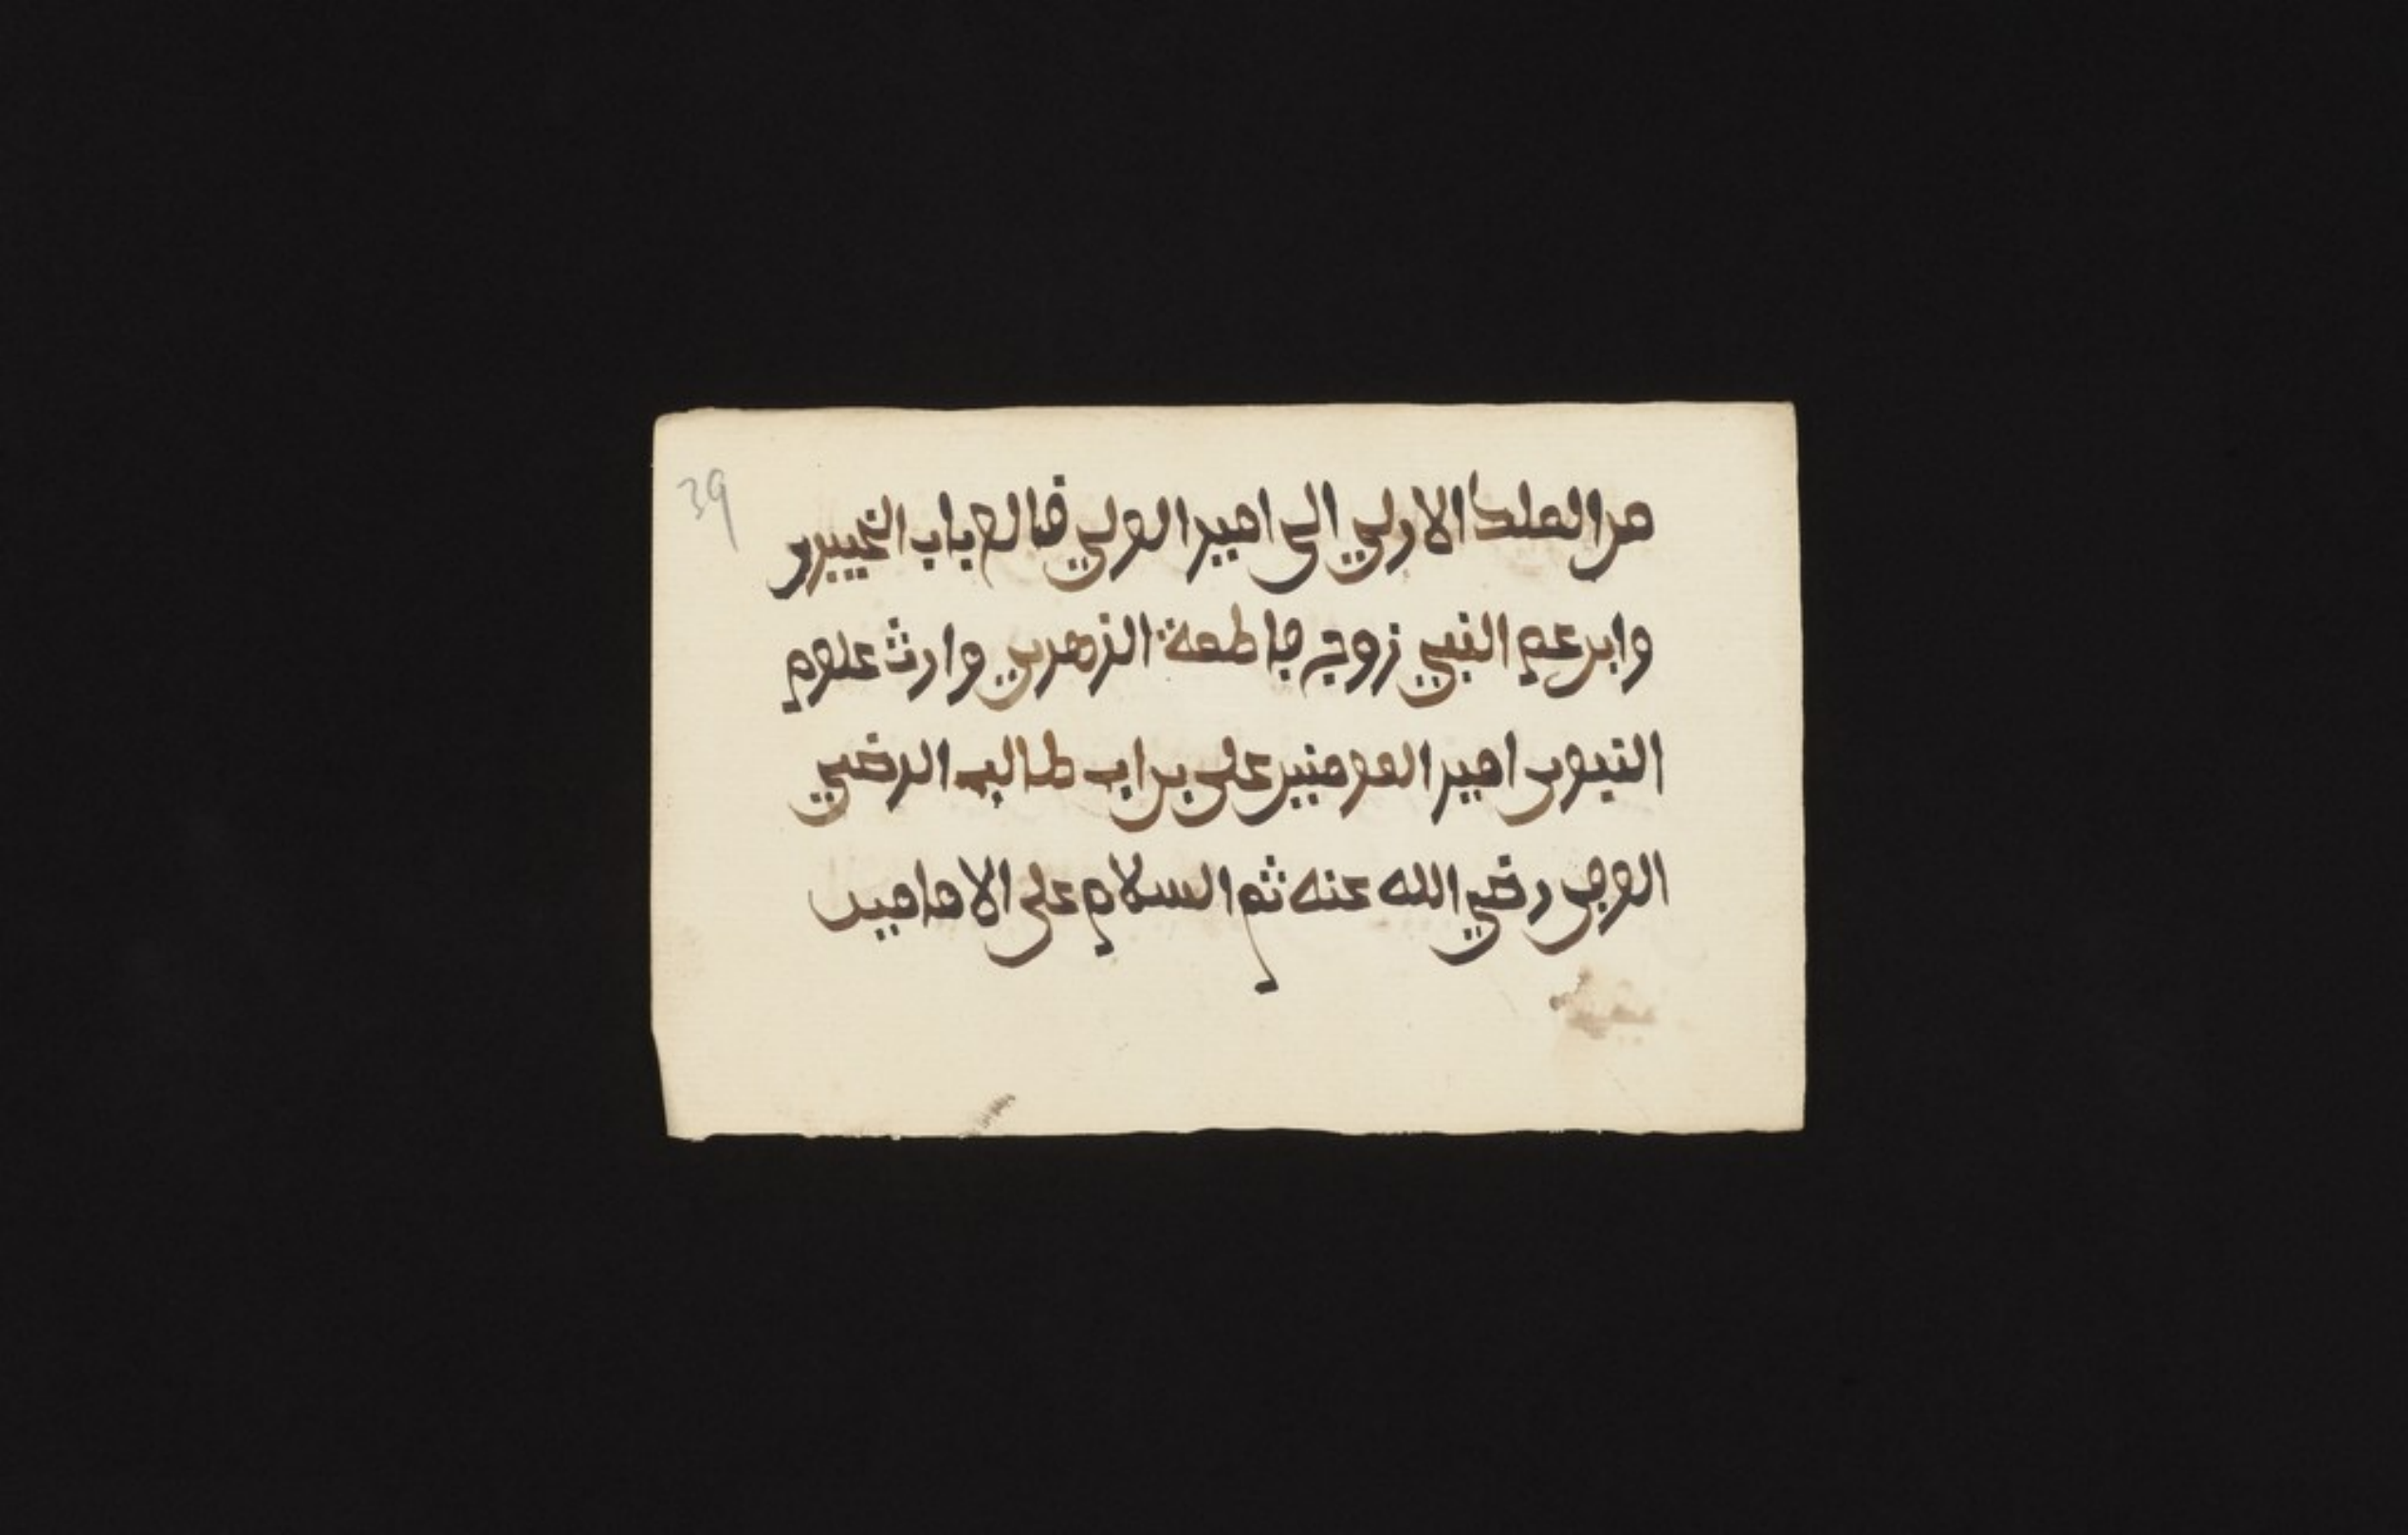 39
من الملك الازلي الى امير الولي فالع باب الخيبرر
وابن عم النبي زوج فاطمة الزهري وارث علوم
النبوي امير المومنين على بن ابي طالب الرضي
الوفى رضي الله عنه ثم السلام على الامامين